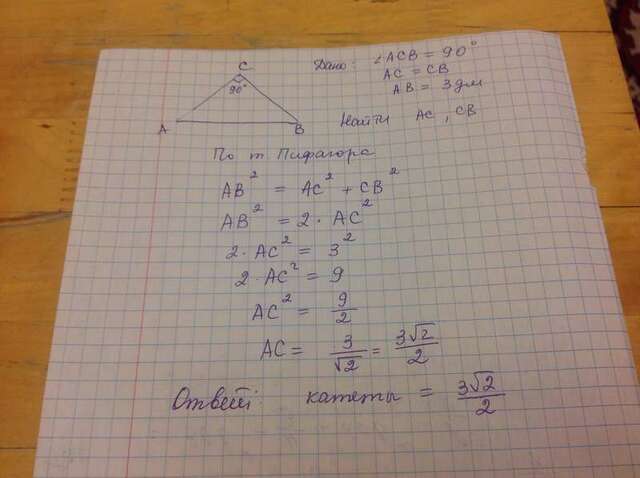 C
90°
A
B
Дано: ∠ACB = 90°
AC = CB
AB = 3 дм
Найти AC, CB
По т Пифагора
AB² = AC² + CB²
AB² = 2 · AC²
2 · AC² = 3²
2 · AC² = 9
AC² = 9/2
AC = 3/√2 = 3√2/2
Ответ: катеты = 3√2/2